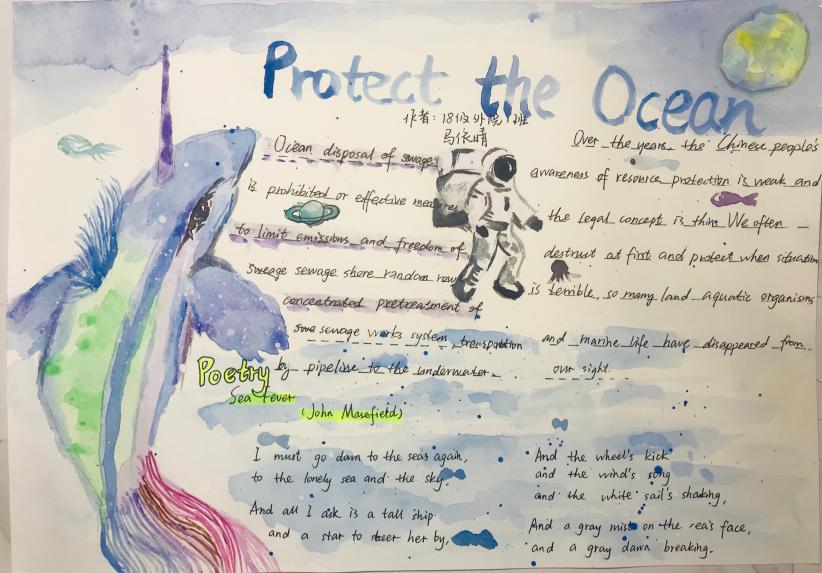 Protect the Ocean
作者：18级外院1班
马依晴
Ocean disposal of sewage
is prohibited or effective measures
to limit emissions and freedom of
sweage sewage shore random row
concentrated pretreatment of
sewage works system, transpation
by pipeline to the underwater.
Over the years the Chinese people's
awareness of resource protection is weak and
the legal concept is thin We often
destruct at first and protect when situation
is terrible, so many land aquatic organisms
and marine life have disappeared from
our sight.
Poetry
Sea fever
(John Masefield)
I must go down to the seas again,
to the lonely sea and the sky,
And all I ask is a tall ship
and a star to steer her by,
And the wheel's kick
and the wind's song
and the white sail's shaking,
And a gray mist on the sea's face,
and a gray dawn breaking.